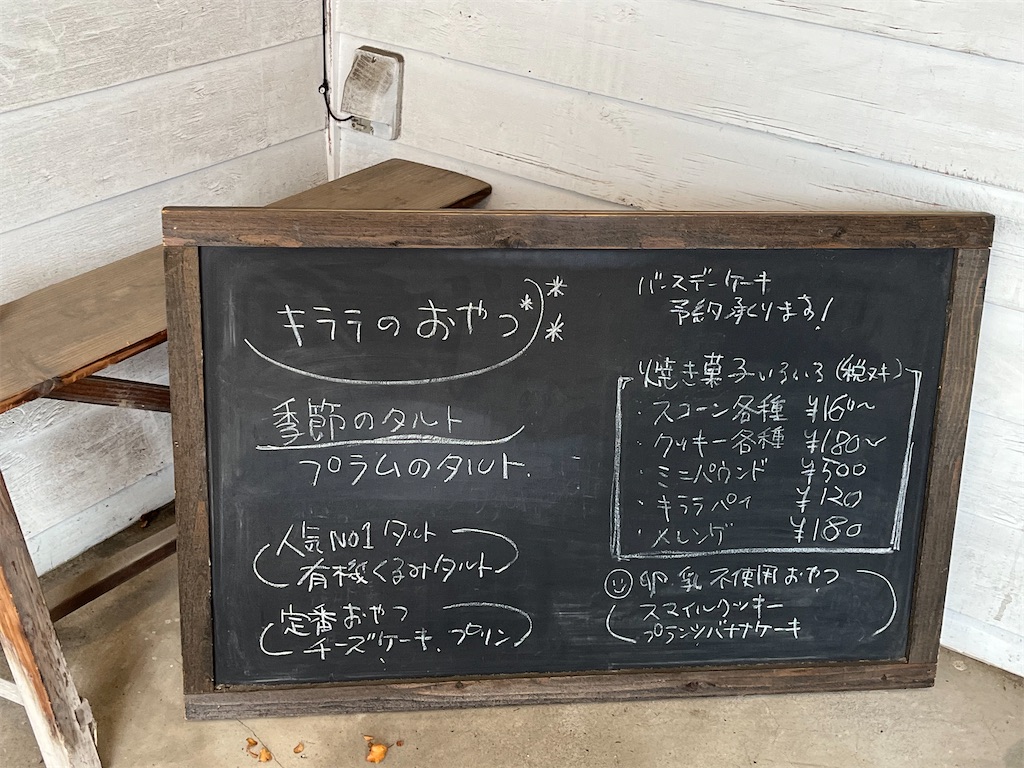 キララのおやつ
季節のタルト
プラムのタルト.
人気No1タルト
有機くるみタルト
定番おやつ
チーズケーキ、プリン
バースデーケーキ
予約承ります!
焼き菓子いろいろ(税ヌキ)
・スコーン各種 ¥160〜
・クッキー各種 ¥180〜
・ミニパウンド ¥500
・キララパイ ¥120
・メレンゲ ¥180
卵、乳不使用おやつ
スマイルクッキー
プランツバナナケーキ